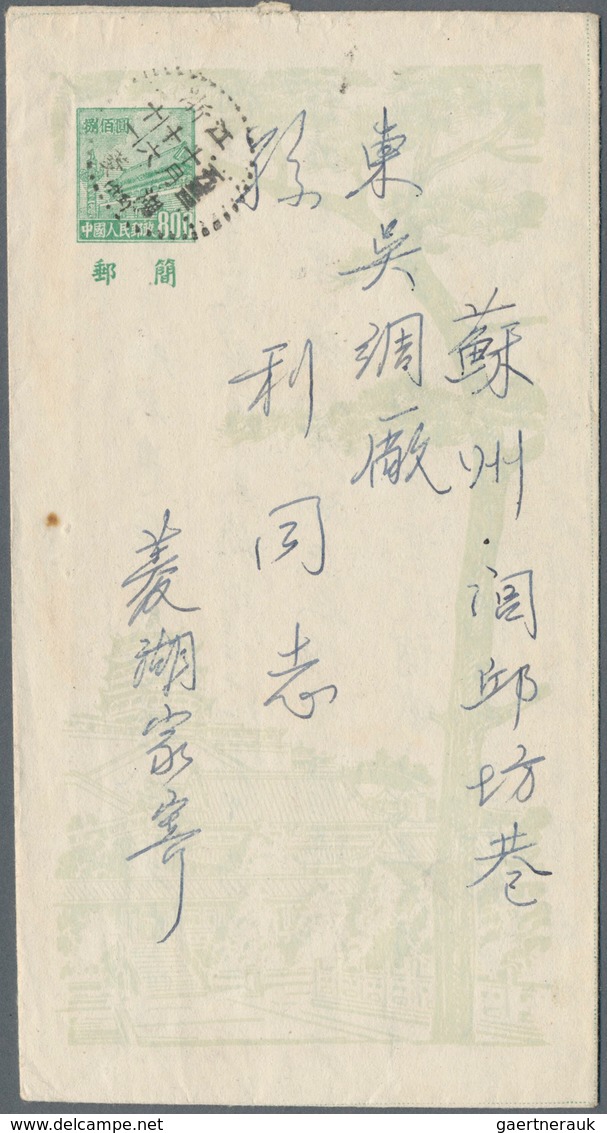 捌佰圓
中國人民郵政 800
郵簡
浙江
蘇州·闾邱坊巷
東吳綢廠
孫利同志
菱湖家寄
DELCAMPE.NET
gaertnerauk